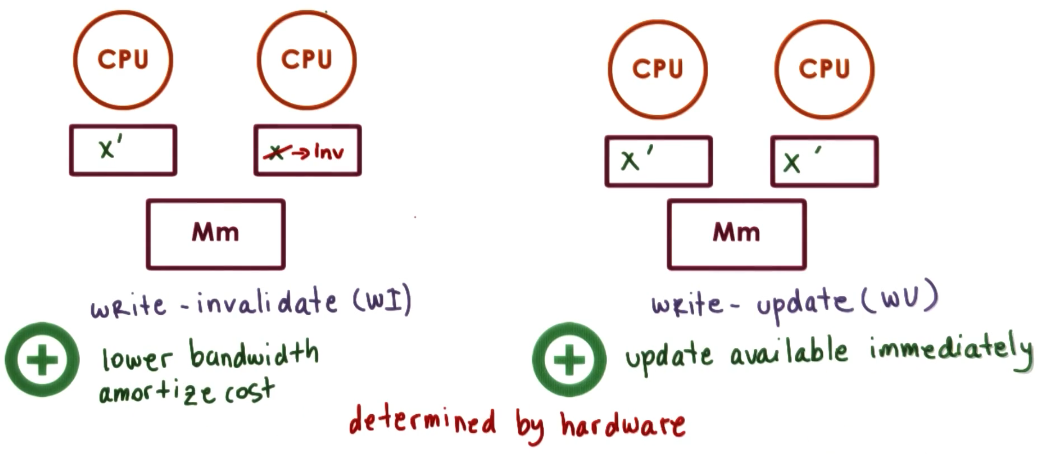 CPU CPU
X' X → Inv
Mm
write - invalidate (WI)
+ lower bandwidth
amortize cost
CPU CPU
X' X'
Mm
write - update (WU)
+ update available immediately
determined by hardware